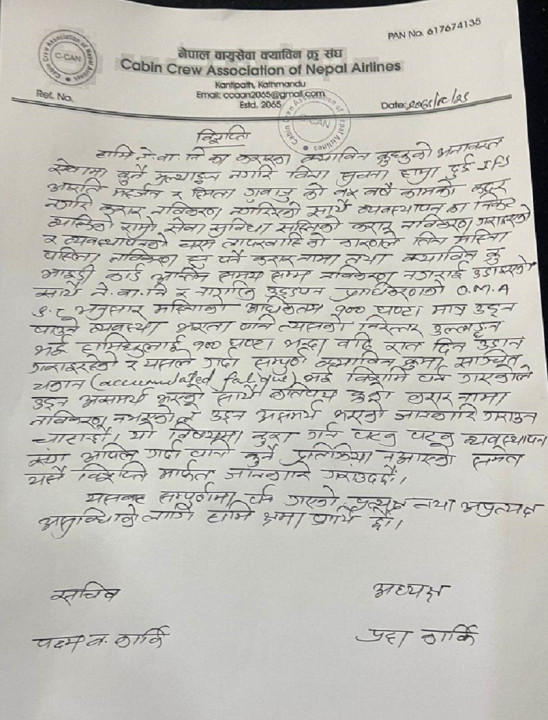 PAN No. 617674135
नेपाल वायुसेवा क्याविन क्रू संघ
Cabin Crew Association of Nepal Airlines
Kantipath, Kathmandu
Email: ccaan2065@gmail.com
Estd. 2065
Ref. No.
Date:
C-CAN
विज्ञप्ति
हामि ने.वा.नि का करारका क्याविन क्रुहरुको अनावरत
सेवामा कुनै मुल्यांकन नगरि विना सुचना हाम्रा दुई IFS
आरति महर्जन र स्मिता गुवाजु को वर्षौ कामको कदर
नगरि करार नविकरण नगरिएको साथै व्यवस्थापन का निकट
व्यक्तिको राम्रो सेवा सुविधा सहितको करार नविकरण गराइएको
र व्यवस्थापनको चरम लापरवाहि को कारणले तिन महिना
पहिला नविकरण हुनु पर्ने करारनामा तथा क्याविन क्रु
आइडी कार्ड अन्तिम समय सम्म नविकरण नगराई उडाइएको
साथै ने.वा.नि र नागरिक उड्डयन प्राधिकरणको O.M.A
अनुसार महिनाको अधिकतम १०० घण्टा मात्र उड्न
पाउने व्यवस्था भएता पनि त्यसको निरन्तर उल्लंघन
भई हामिहरुलाई १०० घण्टा भन्दा वढि रात दिन उडान
गराइएको र यसले गर्दा सम्पूर्ण क्याविन क्रुमा सञ्चित
थकान (accumulated fatigue) भई विरामि पर्ने गरेकोले
उड्न असमर्थ भएको साथै कतिपय क्रुको करारनामा
नविकरण नभएकोले उड्न असमर्थ भएको जानकारि गराउन
चाहन्छौ। यो विषयमा कुरा गर्न पटक पटक व्यवस्थापन
संग अपिल गर्दा पनि कुनै प्रतिक्रिया नआएको समेत
यसै विज्ञप्ति मार्फत जानकारि गराउदछौ।
यसवाट सम्पूर्णमा पर्न गएको प्रत्यक्ष तथा अप्रत्यक्ष
असुविधाको लागि हामि क्षमा प्रार्थि छौ।
सचिव अध्यक्ष
पदम व. कार्कि प्रज्ञा कार्कि